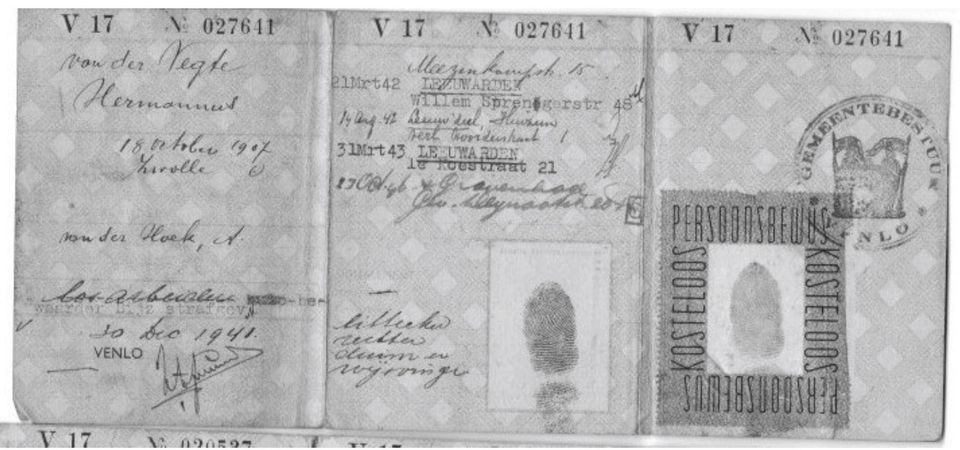 V 17 № 027641
von der Vegte
Hermannus
18 October 1907
Zwolle
von der Hoek, A.
los-arbeider
waarder bijz strafgev
30 Dec 1941.
VENLO
V 17 № 027641
Meezenkampstr. 15
21Mrt42 LEEUWARDEN
Willem Sprengerstr 48
14 Aug. 42 Huizum
1
31Mrt43 LEEUWARDEN
1e Roestraat 21
23 Oct 46
litteeken
rechter
duim en
V 17 № 027641
GEMEENTEBESTUUR
VENLO
PERSOONSBEWIJS
KOSTELOOS
KOSTELOOS
PERSOONSBEWIJS
V 17 № 020527
V 17